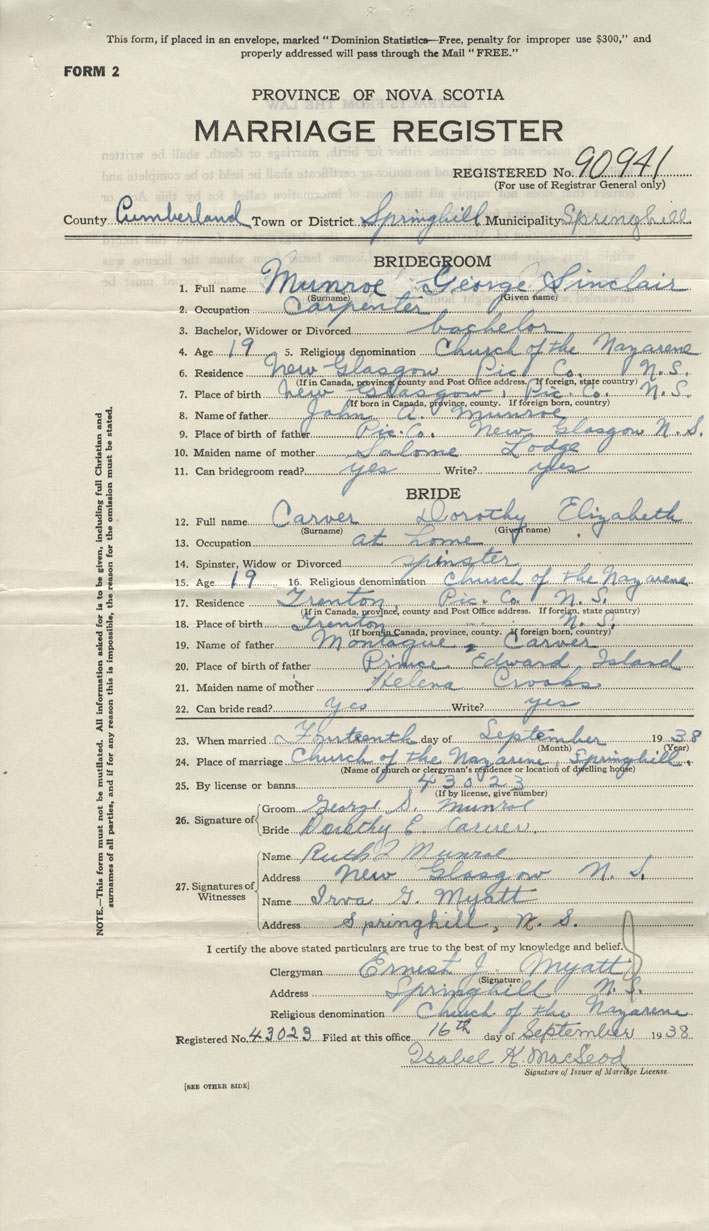 This form, if placed in an envelope, marked "Dominion Statistics—Free, penalty for improper use $300," and
properly addressed will pass through the Mail "FREE."
FORM 2
PROVINCE OF NOVA SCOTIA
MARRIAGE REGISTER
REGISTERED No. 90941
(For use of Registrar General only)
County Cumberland Town or District Springhill Municipality Springhill
BRIDEGROOM
1. Full name Munroe George Sinclair
(Surname) (Given name)
2. Occupation Carpenter
3. Bachelor, Widower or Divorced bachelor
4. Age 19 5. Religious denomination Church of the Nazarene
6. Residence New Glasgow Pic. Co. N.S.
(If in Canada, province, county and Post Office address. If foreign, state country)
7. Place of birth New Glasgow, Pic. Co. N.S.
(If born in Canada, province, county. If foreign born, country)
8. Name of father John A. Munroe
9. Place of birth of father Pic. Co. New Glasgow N.S.
10. Maiden name of mother Salome Lodge
11. Can bridegroom read? yes Write? yes
BRIDE
12. Full name Carver Dorothy Elizabeth
(Surname) (Given name)
13. Occupation at home
14. Spinster, Widow or Divorced spinster
15. Age 19 16. Religious denomination Church of the Nazarene
17. Residence Trenton Pic. Co. N.S.
(If in Canada, province, county and Post Office address. If foreign, state country)
18. Place of birth Trenton N.S.
(If born in Canada, province, county. If foreign born, country)
19. Name of father Montague Carver
20. Place of birth of father Prince Edward Island
21. Maiden name of mother Helena Crooks
22. Can bride read? yes Write? yes
23. When married Fourteenth day of September 1938
(Month) (Year)
24. Place of marriage Church of the Nazarene, Springhill.
(Name of church or clergyman's residence or location of dwelling house)
25. By license or banns 43023
(If by license, give number)
26. Signature of Groom George S. Munroe
Bride Dorothy E. Carver
27. Signatures of Witnesses Name Ruth L Munroe
Address New Glasgow N.S.
Name Irva G. Myatt
Address Springhill, N.S.
I certify the above stated particulars are true to the best of my knowledge and belief.
Clergyman Ernest J. Myatt
(Signature)
Address Springhill N.S.
Religious denomination Church of the Nazarene
Registered No. 43023 Filed at this office 16th day of September 1938
Isabel K. MacLeod
Signature of Issuer of Marriage License.
[SEE OTHER SIDE]
NOTE.—This form must not be mutilated. All information asked for is to be given, including full Christian and
surnames of all parties, and if for any reason this is impossible, the reason for the omission must be stated.